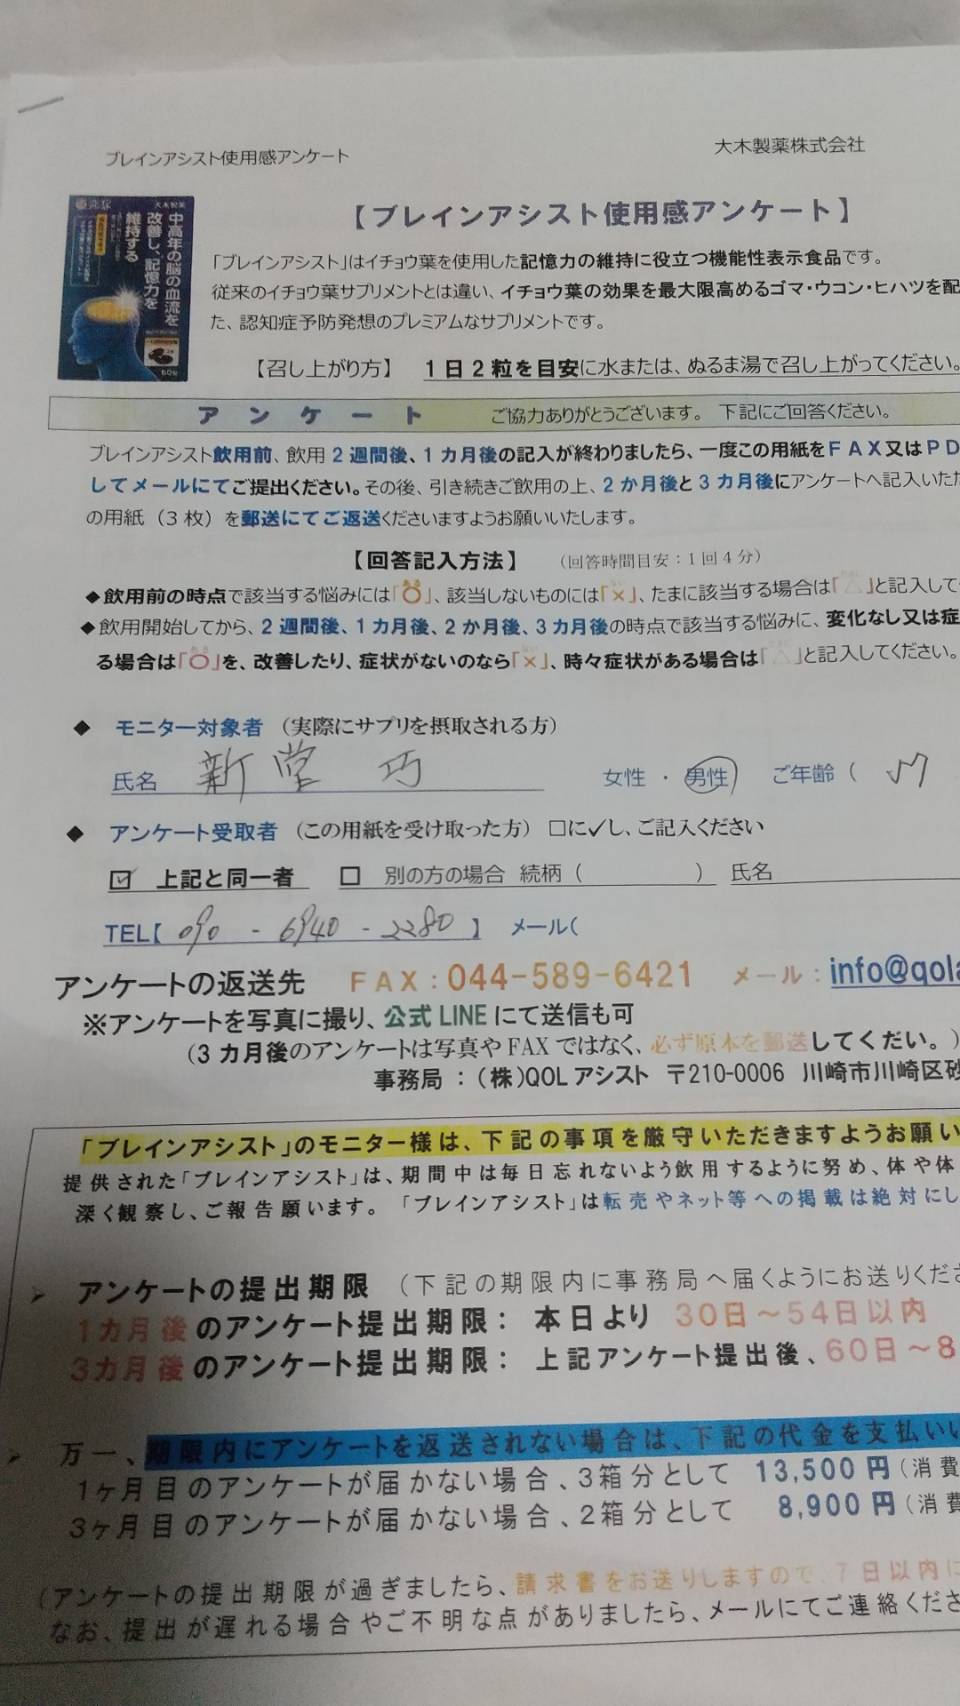 ブレインアシスト使用感アンケート
大木製薬株式会社
大木製薬
中高年の脳の血流を
改善し、記憶力を
維持する
【ブレインアシスト使用感アンケート】
「ブレインアシスト」はイチョウ葉を使用した記憶力の維持に役立つ機能性表示食品です。
従来のイチョウ葉サプリメントとは違い、イチョウ葉の効果を最大限高めるゴマ・ウコン・ヒハツを配
た、認知症予防発想のプレミアムなサプリメントです。
【召し上がり方】 1日2粒を目安に水または、ぬるま湯で召し上がってください。
アンケート ご協力ありがとうございます。 下記にご回答ください。
ブレインアシスト飲用前、飲用2週間後、1カ月後の記入が終わりましたら、一度この用紙をFAX又はPD
してメールにてご提出ください。その後、引き続きご飲用の上、2か月後と3カ月後にアンケートへ記入いただ
の用紙（3枚）を郵送にてご返送くださいますようお願いいたします。
【回答記入方法】 （回答時間目安：1回4分）
◆飲用前の時点で該当する悩みには「○」、該当しないものには「×」、たまに該当する場合は「△」と記入して
◆飲用開始してから、2週間後、1カ月後、2か月後、3カ月後の時点で該当する悩みに、変化なし又は症
る場合は「○」を、改善したり、症状がないのなら「×」、時々症状がある場合は「△」と記入してください。
◆ モニター対象者 （実際にサプリを摂取される方）
氏名 新堂 巧 女性 ・ 男性 ご年齢（
◆ アンケート受取者 （この用紙を受け取った方） □に✓し、ご記入ください
☑ 上記と同一者 □ 別の方の場合 続柄（ ） 氏名
TEL【 090 - 6940 - 2280 】 メール（
アンケートの返送先 FAX：044-589-6421 メール：info@qola
※アンケートを写真に撮り、公式LINEにて送信も可
（3カ月後のアンケートは写真やFAXではなく、必ず原本を郵送してくだい。）
事務局：（株）QOLアシスト 〒210-0006 川崎市川崎区砂
「ブレインアシスト」のモニター様は、下記の事項を厳守いただきますようお願い
提供された「ブレインアシスト」は、期間中は毎日忘れないよう飲用するように努め、体や体
深く観察し、ご報告願います。 「ブレインアシスト」は転売やネット等への掲載は絶対にし
➢ アンケートの提出期限 （下記の期限内に事務局へ届くようにお送りくださ
1カ月後のアンケート提出期限： 本日より 30日～54日以内
3カ月後のアンケート提出期限： 上記アンケート提出後、60日～8
➢ 万一、期限内にアンケートを返送されない場合は、下記の代金を支払いい
1ヶ月目のアンケートが届かない場合、3箱分として 13,500円（消費
3ヶ月目のアンケートが届かない場合、2箱分として 8,900円（消費
（アンケートの提出期限が過ぎましたら、請求書をお送りしますので、7日以内に
なお、提出が遅れる場合やご不明な点がありましたら、メールにてご連絡くださ